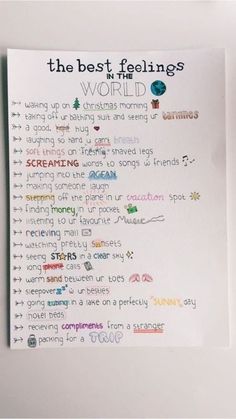 the best feelings
IN THE
WORLD
waking up on christmas morning
taking off ur bathing suit and seeing ur tanlines
a good, hug
laughing so hard u can't breath
soft things on freshly shaved legs
SCREAMING words to songs w friends
jumping into the OCEAN
making someone laugh
stepping off the plane in ur vacation spot
finding money in ur pocket
listening to ur favourite Music
recieving mail
watching pretty sunsets
seeing STARS in a clear sky
long phone calls
warm sand between ur toes
sleepover w ur besties
going tubing in a lake on a perfectly SUNNY day
hotel beds
recieving compliments from a stranger
packing for a TRIP